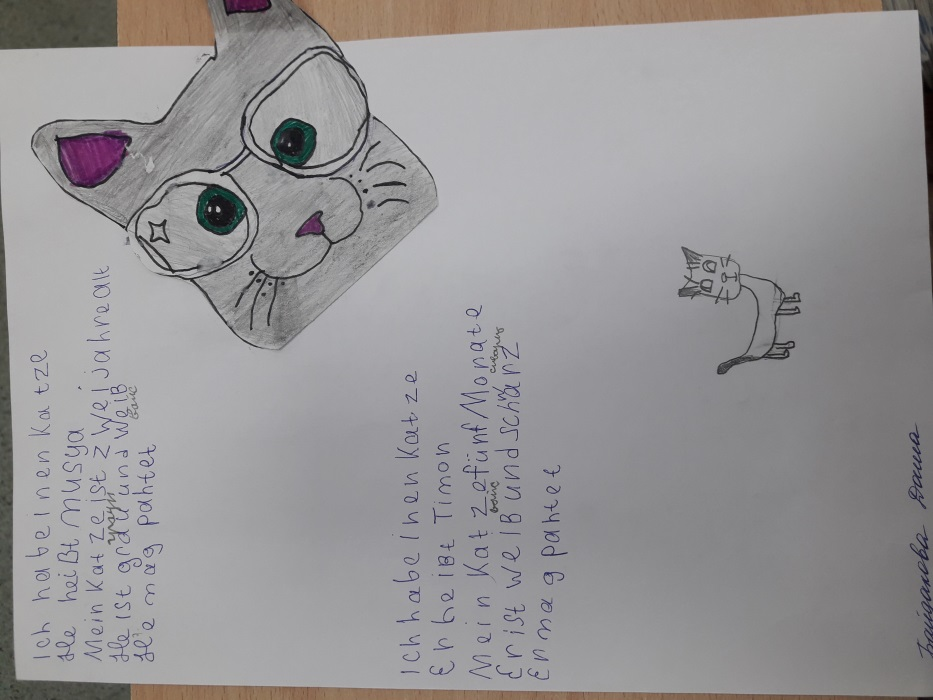 Ich habe inen Katze
He heißt Musya
Mein Katze ist zwei jahre alt
He ist grau und weiß
граун
вайс
He mag pahtet
Ich habe inen Katze
Er heißt Timon
Mein Katze fünf Monate
Er ist weiß und schwarz
вайс
Er mag pahtet